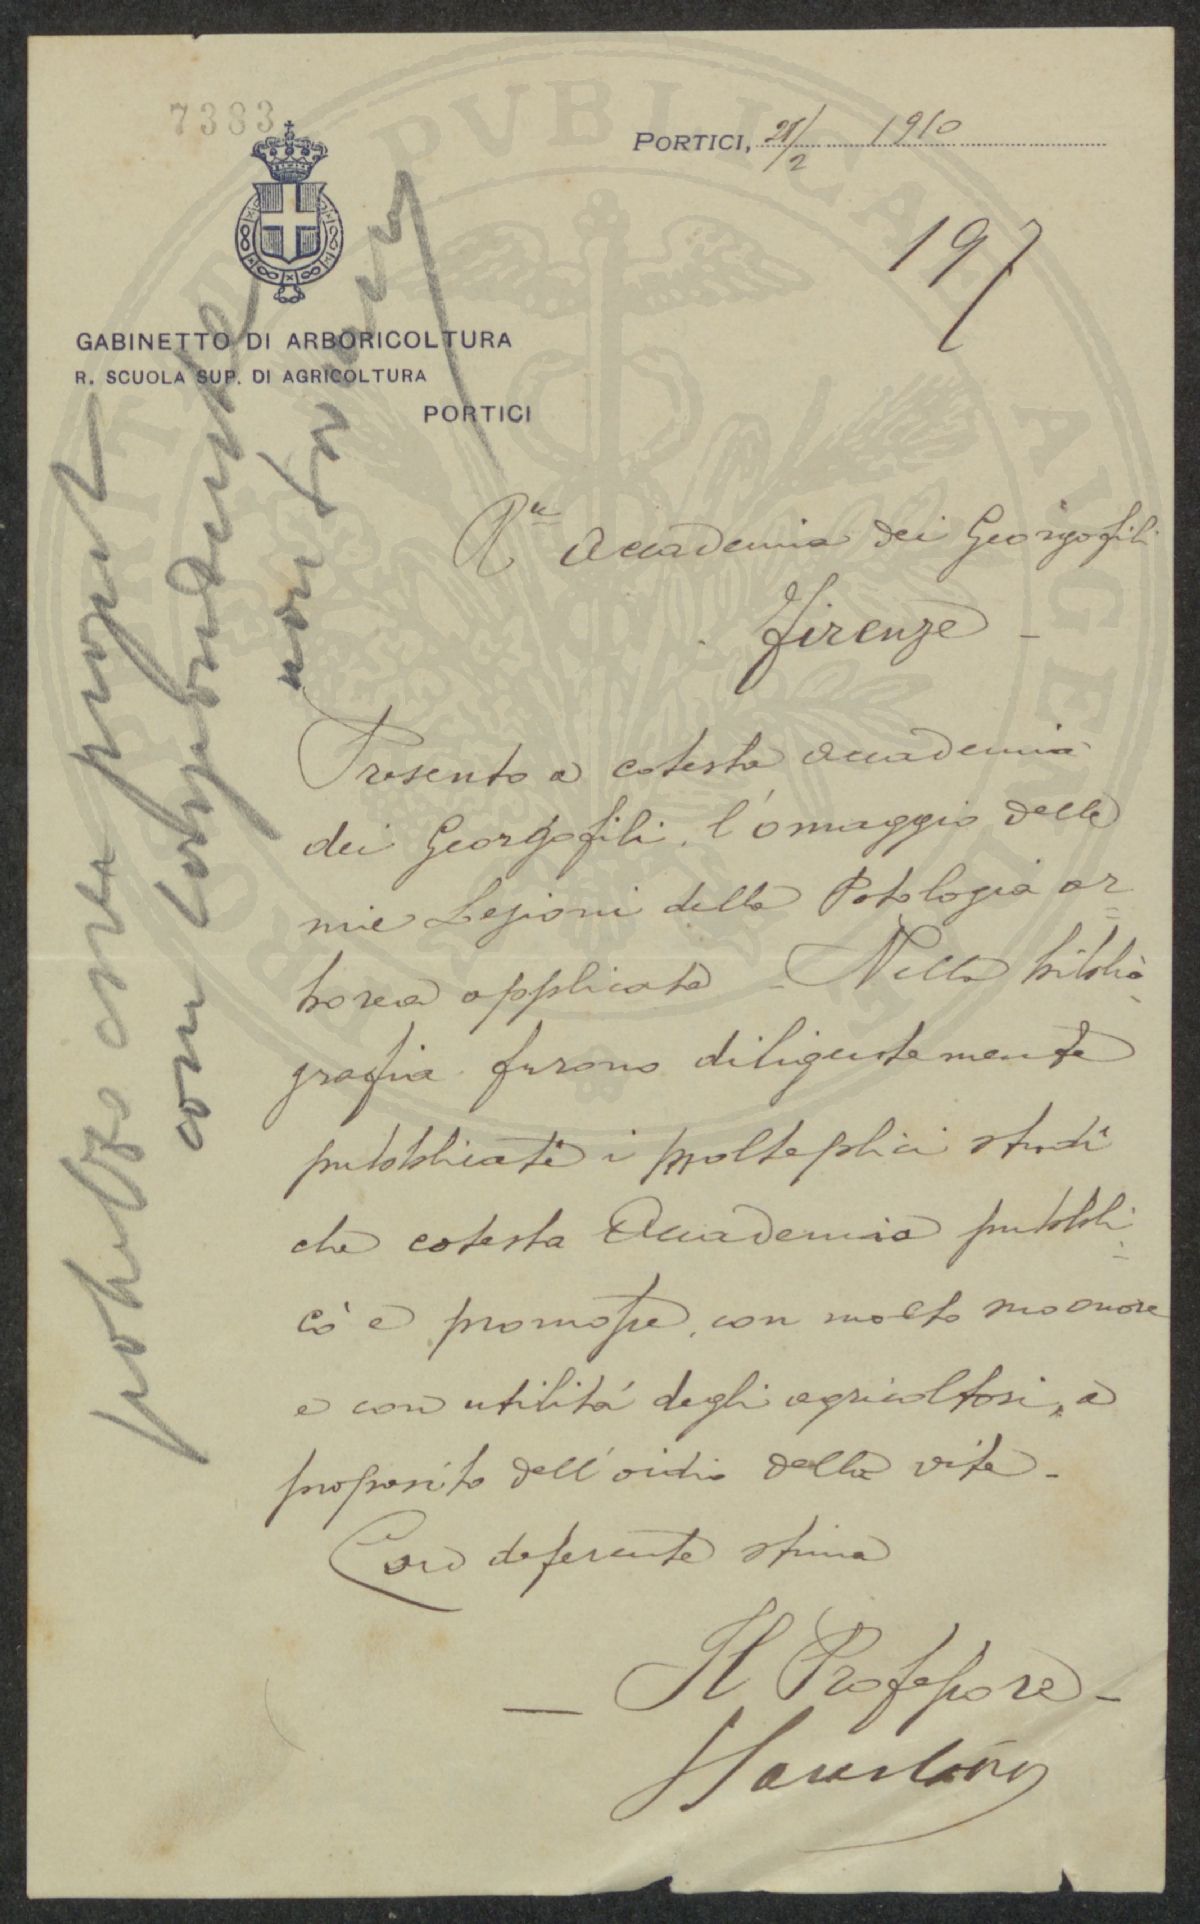 7383
PORTICI, 21/2 1910
197
GABINETTO DI ARBORICOLTURA
R. SCUOLA SUP. DI AGRICOLTURA
PORTICI
R.le Accademia dei Georgofili
Firenze
Presento a cotesta accademia
dei Georgofili, l'omaggio delle
mie Lezioni della Patologia ar=
borea applicata. Nella biblio=
grafia furono diligentemente
pubblicati i molteplici studi
che cotesta Accademia pubbli=
cò e promosse, con molto suo onore
e con utilità degli agricoltori, a
proposito dell'oidio della vite.
Con deferente stima
Il Professore
con corrispondente
non